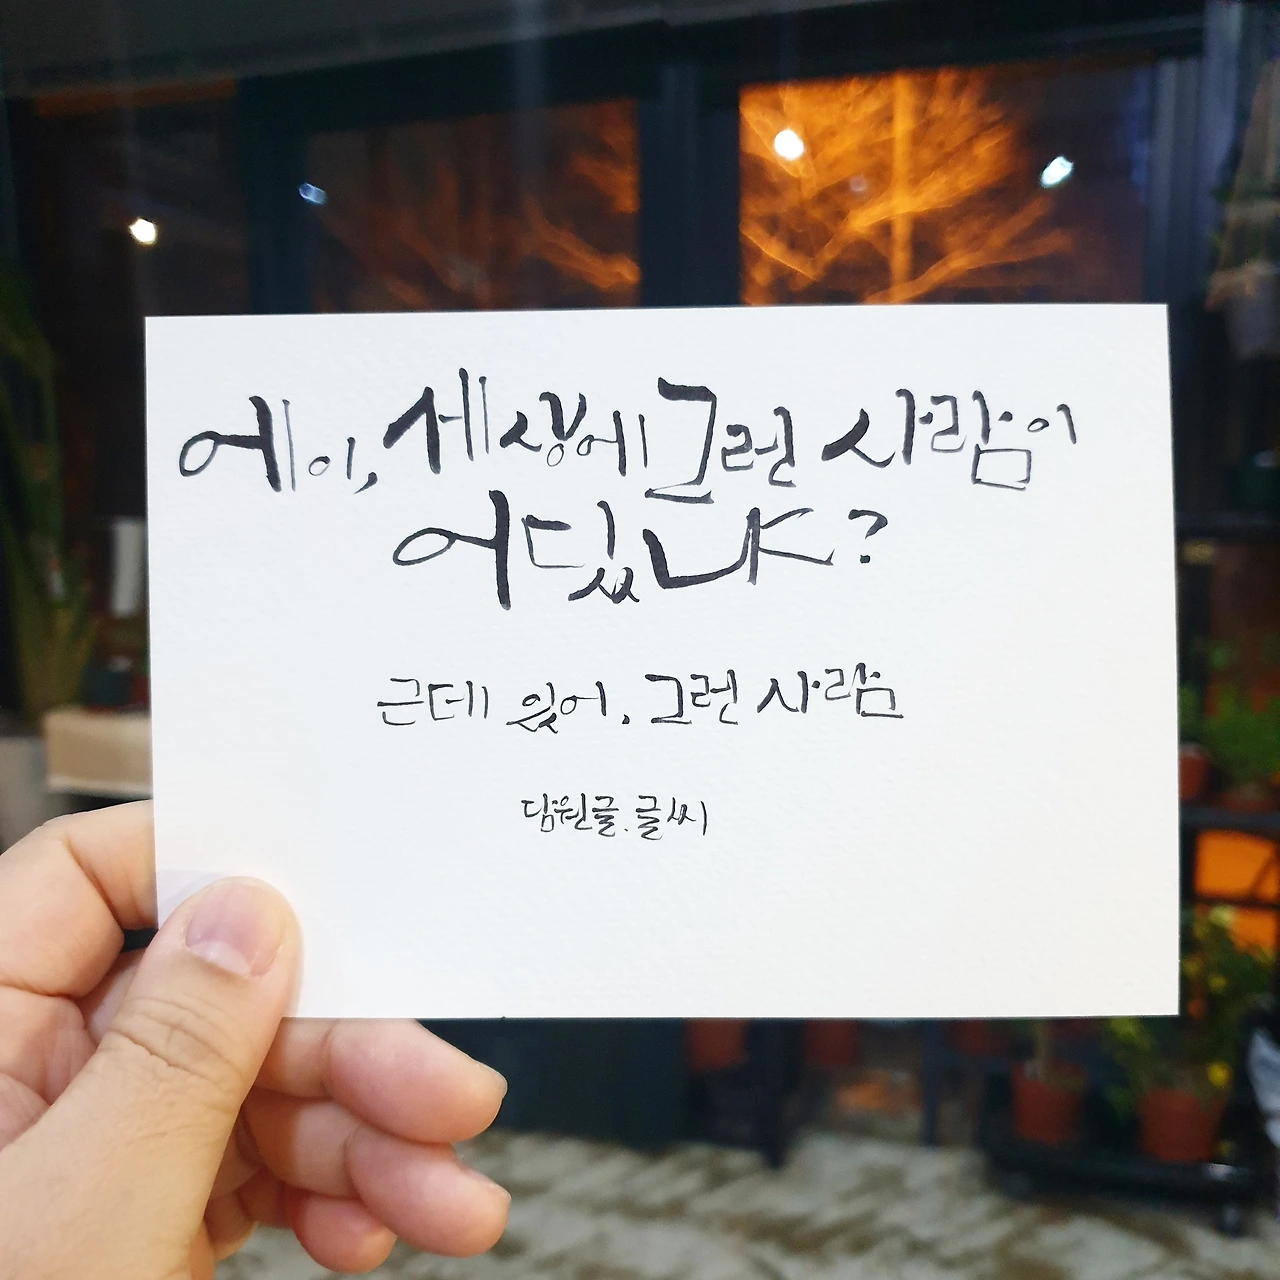 에이, 세상에 그런 사람이
어딨냐?
근데 있어, 그런 사람
담원글.글씨